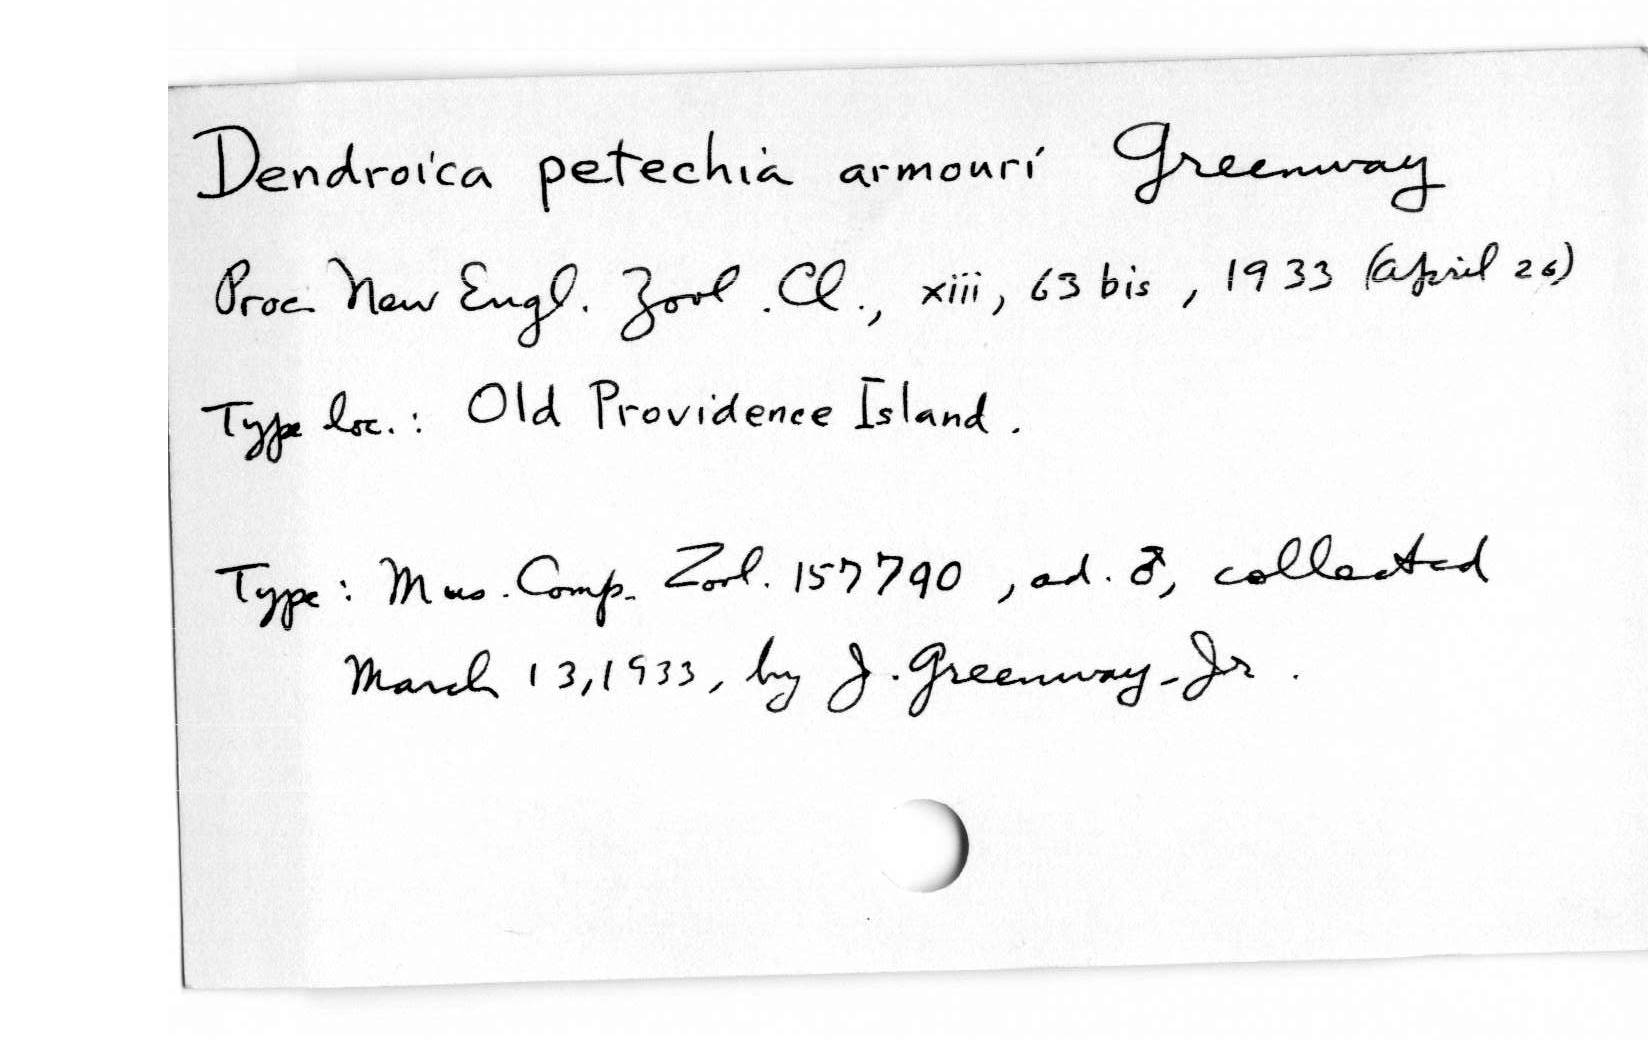 Dendroica petechia armouri Greenway
Proc. New Engl. Zool. Cl., xiii, 63 bis, 1933 (April 26)
Type loc.: Old Providence Island.
Type: Mus. Comp. Zool. 157790, ad. ♂, collected
March 13, 1933, by J. Greenway-Jr.